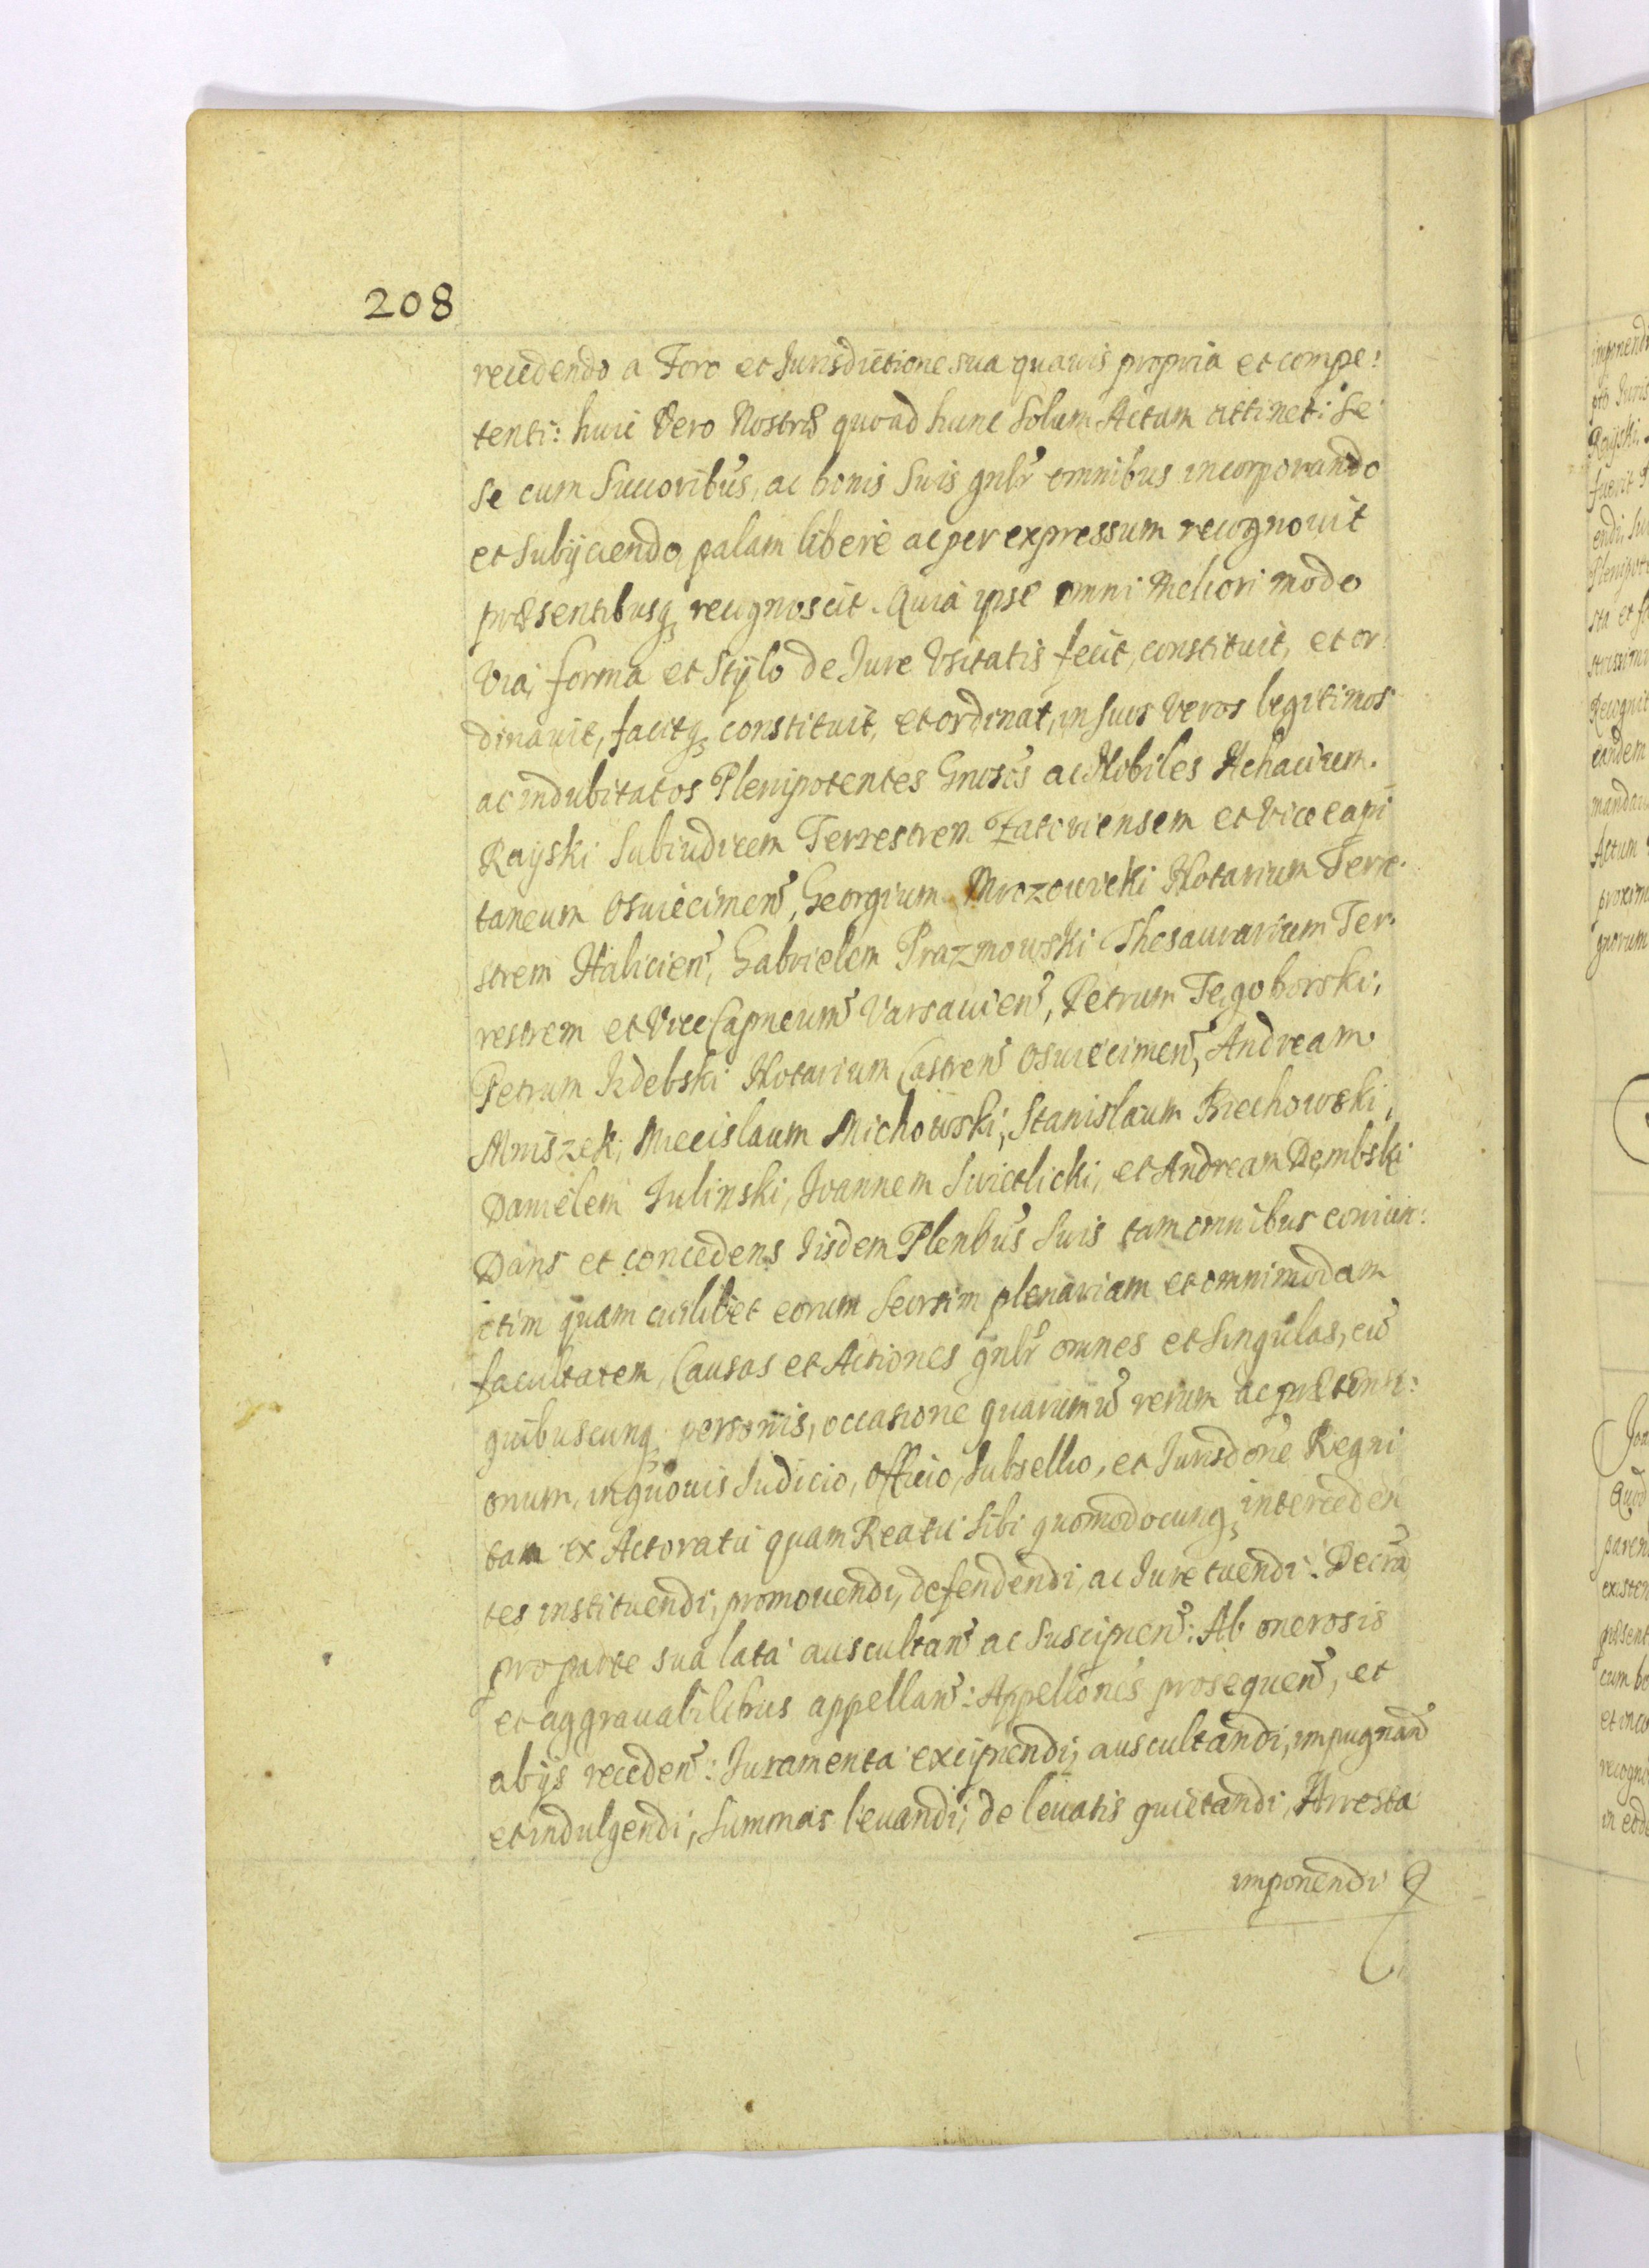 208
recedendo a Foro et Jurisdictione sua quavis propria et compe:
tenti: huic Vero Nostræ quoad hunc Solum Actum attinet: Se
se cum Succoribus, ac bonis Suis gnlr omnibus incorporando
et Subÿciendo, palam liberè ac per expressum recognovit
præsentibusq recognoscit. Quia ipse omni Meliori modo
Via, forma et Stÿlo de Jure Vsitatis fecit, constituit, et or:
dinauit, facitq constituit, et ordinat, in suos Veros legitimos
ac indubitatos Plenipotentes Gnosos ac Nobiles Achacium
Rayski Subiudicem Terrestrem Zatoriensem et Vice capi
taneum Osuiecimen, Georgium Mrozowicki Notarium Terre
strem Halicien, Gabrielem Prazmowski Thesaurarium Ter
restrem et Vice Capneum Varsauien, Petrum Tęgoborski,
Petrum Izdebski Notarium Castren Osuiecimen, Andream
Mniszek, Miecislaum Michowski, Stanislaum Biechowski,
Danielem Julinski, Joannem Swietlicki, et Andream Dembski
Dans et concedens Iisdem Plenbus Suis tam omnibus coniun:
ctim quam cuilibet eorum Seorsim plenariam et omnimodam
facultatem, Causas et Actiones gnlr omnes et Singulas, cu
quibuscunq personis, occasione quarumu rerum ac prætensi:
onum, in quouis Iudicio, Officio, Subsellio, et Jurisdone Regni
tam ex Actoratu quam Reatu Sibi quomodocunq interceden
tes instituendi, promouendi, defendendi, ac Jure tuendi: Decra
pro parte sua lata auscultan ac Suscipien: Ab onerosis
et aggrauabilibus appellan: Appellones prosequen, et
ab ijs receden: Juramenta excipiendi, auscultandi, impugnand
et indulgendi, Summas leuandi, de leuatis quietandi, Arresta
imponendi